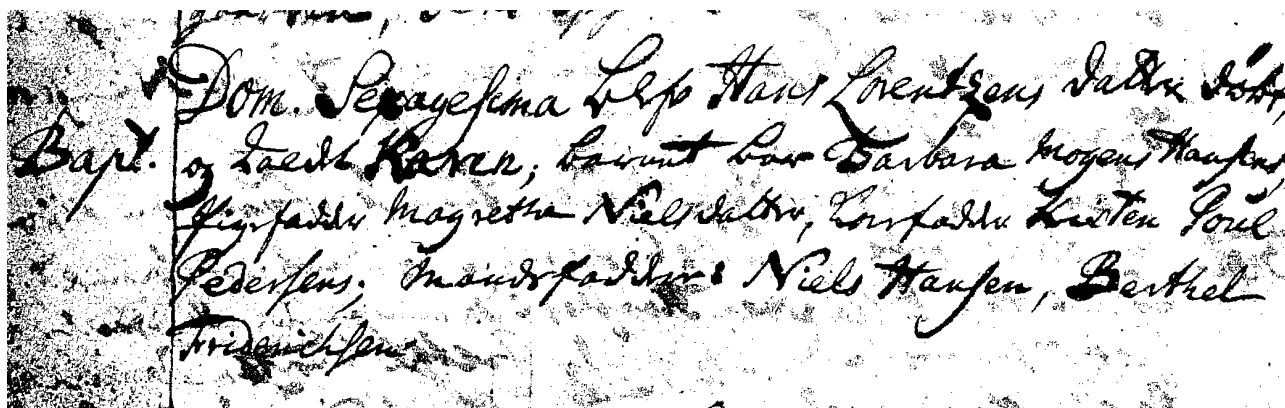 Dom. Sexagesima blef Hans Lorentzens datter døbt,
Bapt. og kaldt Karen; barnet bar Barbara Mogens Hansens,
Pigefadder Magrethe Nielsdatter, Konefadder Kirsten Poul
Pedersens; Mandsfaddere: Niels Hansen, Berthel
Friderichsen